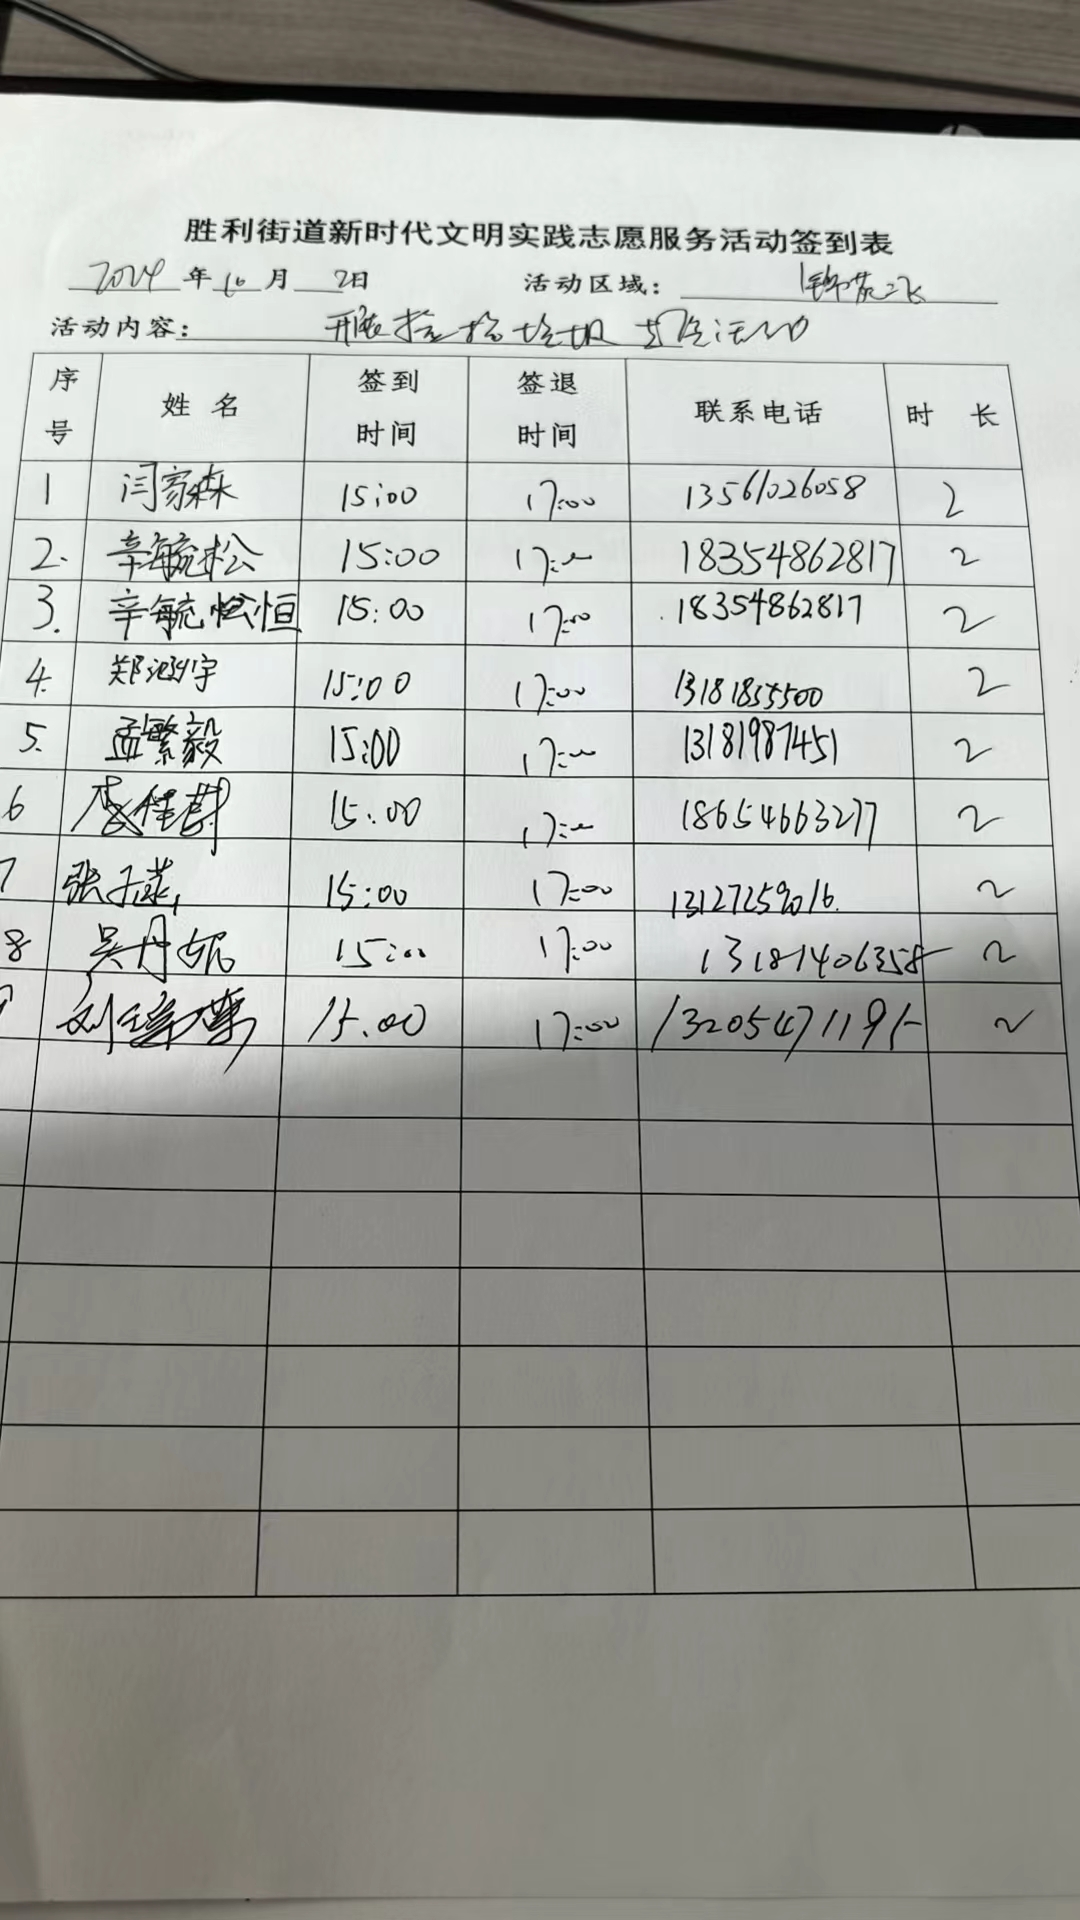 胜利街道新时代文明实践志愿服务活动签到表
2024年10月2日 活动区域：锦苑二
活动内容：开展捡拾垃圾 活动
序号 姓名 签到时间 签退时间 联系电话 时长
1 闫家森 15:00 17:00 13561026058 2
2. 辛毓松 15:00 17:00 18354862817 2
3. 辛毓恒 15:00 17:00 18354862817 2
4. 郑鸿宇 15:00 17:00 13181855500 2
5. 孟繁毅 15:00 17:00 13181987451 2
6 15:00 17:00 18654663277 2
7 张子 15:00 17:00 13127259016. 2
8 吴丹妮 15:00 17:00 13181406358 2
9 刘 15:00 17:00 2